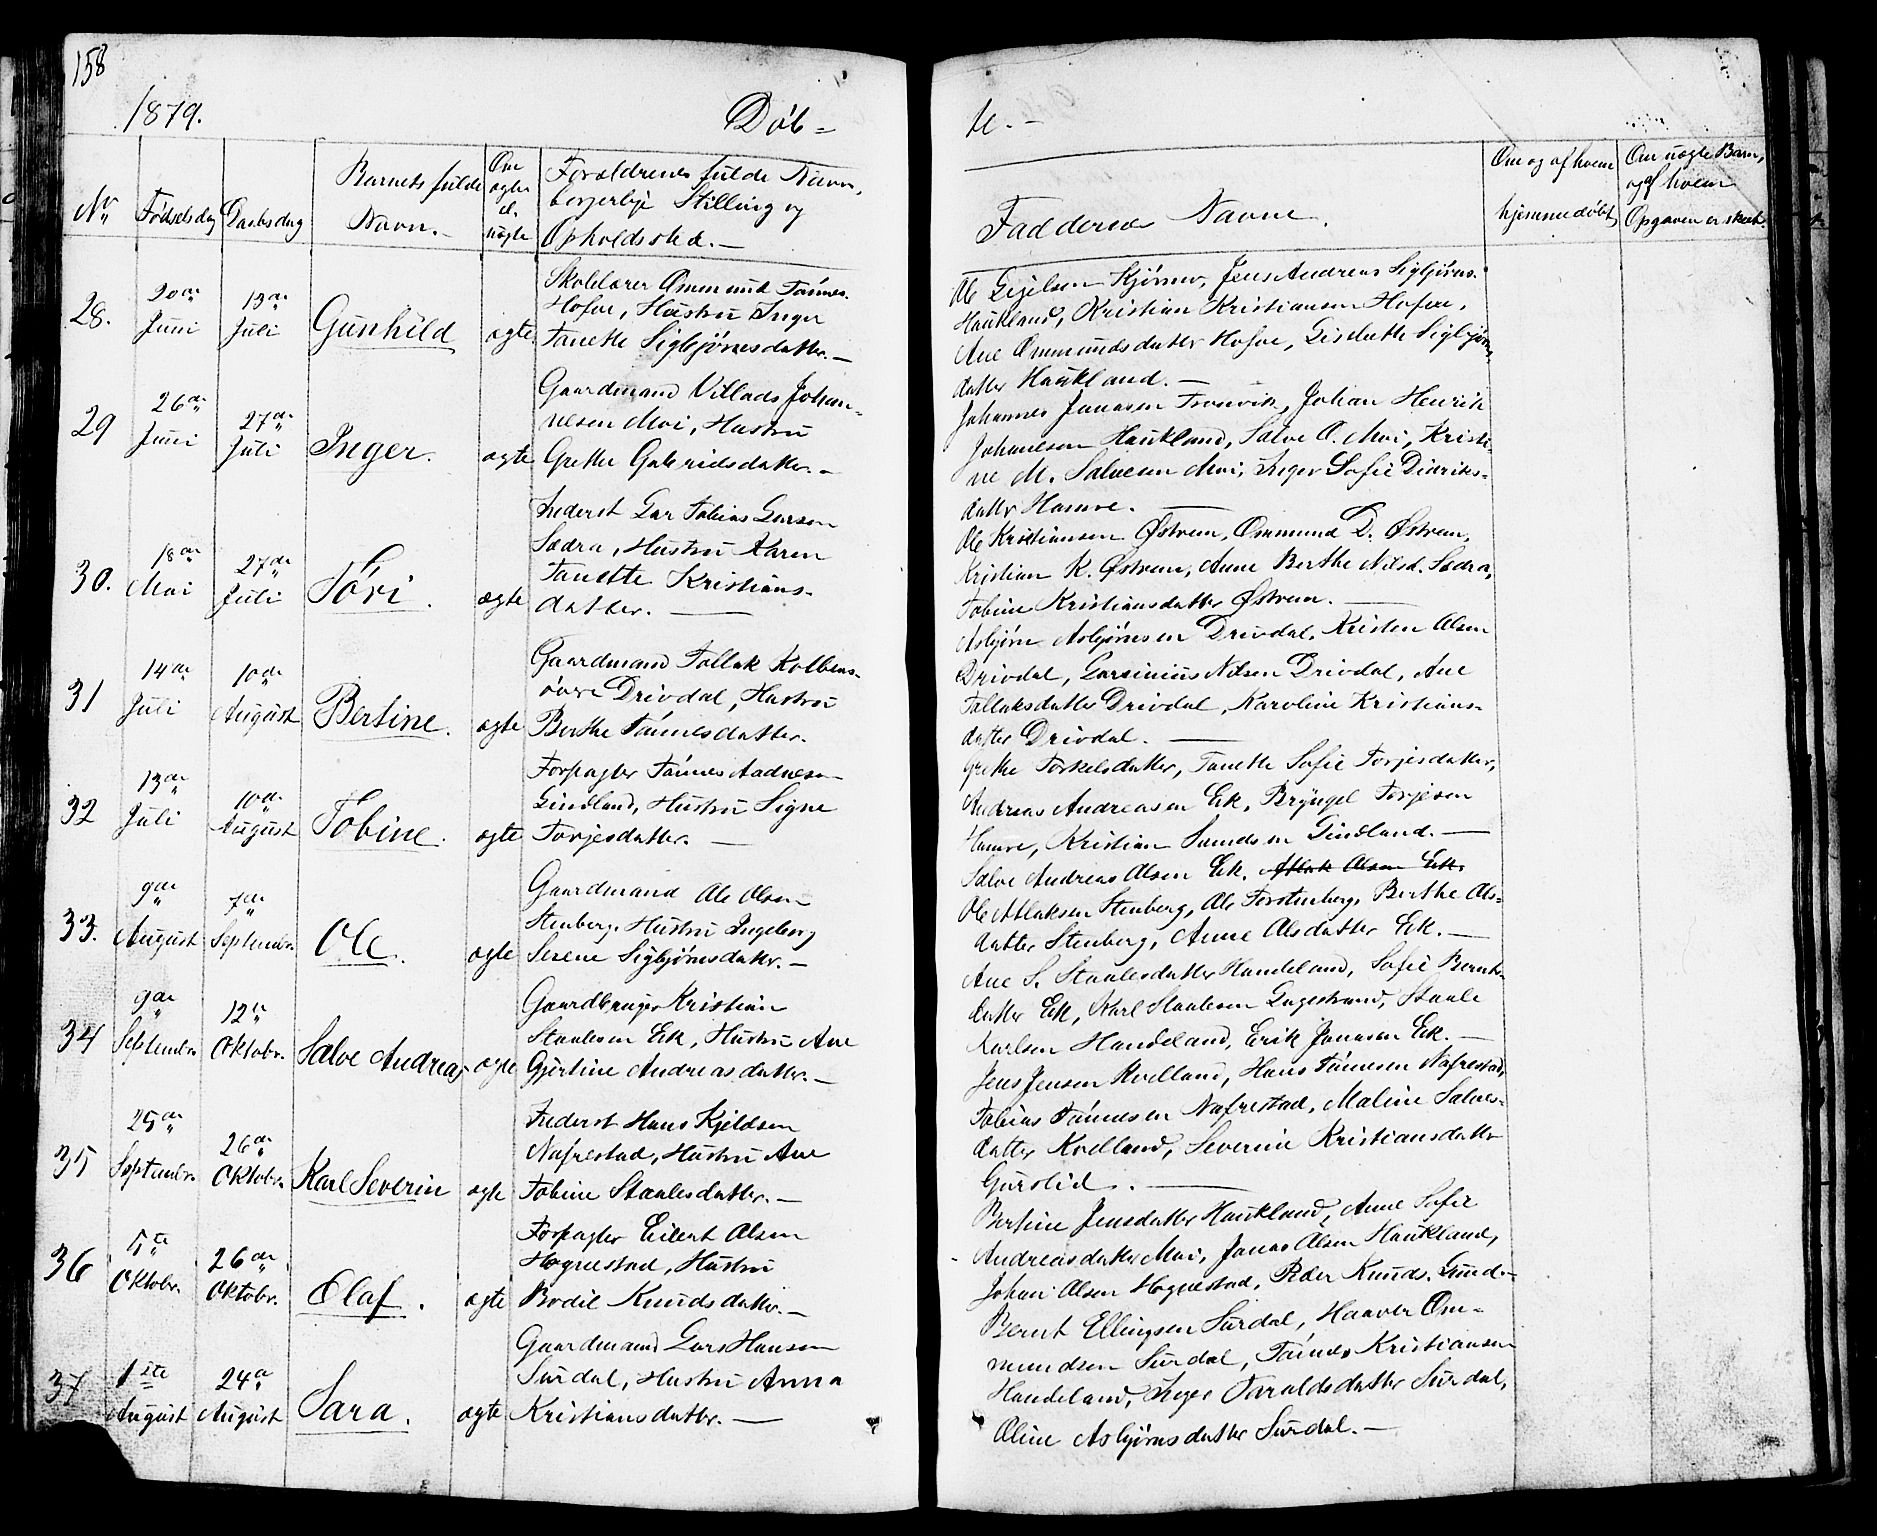 158
1879.
Døb=
te. -
No
Fødselsdag
Daabsdag
Barnets fulde
Navn. -
Om
ægte
el.
uægte
Forældrenes fulde Navn,
borgerlige Stilling og
Opholdssted. -
Faddernes Navne.
Om og af hvem
hjemmedøbt
Om uægte Barn,
og af hvem
Opgaven er skeet.
28.
20de Juni
13de Juli
Gunhild
ægte
Skolelærer Ommund Tønnes.
Hofve, Hustru Inger
Tanette Sigbjørnsdatter. -
Ole Gejelsen Kjørner, Jens Andreas Sigbjørns.
Haukland, Kristian Kristiansen Hofve,
Ane Ommundsdatter Hofve, Lisebette Sigbjørns
datter Haukland. -
29
26de Juni
27de Juli
Inger.
ægte
Gaardmand Villads Johan-
nesen Moi, Hustru
Grethe Gabrielsdatter. -
Johannes Jonasen Tronvik, Johan Henrik
Johanesen Haukland, Salve O. Moi, Kristi-
ne M. Salvesen Moi, Inger Sofie Didriks-
datter Hamre. -
30.
18de Mai
27de Juli
Tøri.
ægte
Inderst Lars Tobias Larsen
Sædra, Hustru Karen
Tanette Kristians-
datter. -
Ole Kristiansen Østrem, Ommund D. Østrem,
Kristian K. Østrem, Anne Berthe Nilsd. Sædra,
Tobine Kristiansdatter Østrem. -
31
14de Juli
10de August
Bertine.
ægte
Gaardmand Tollak Kolbens-
øvre Drivdal, Hustru
Berthe Tønnesdatter.
Asbjørn Asbjørnsen Drivdal, Kristen Olsen
Drivdal, Larsinius Nilsen Drivdal, Ane
Tollaksdatter Drivdal, Karoline Kristians-
datter Drivdal. -
32
13de Juli
10de August
Tobine.
ægte
Forpagter Tønnes Aadnesen
Gindland, Hustru Signe
Torjesdatter. -
Grethe Torkelsdatter, Tanette Sofie Torjesdatter,
Andreas Andreasen Eik, Bryngel Torjesen
Hamre, Kristian Samdsen Gindland. -
33.
9de August
7de Septembr.
Ole.
ægte
Gaardmand Ole Olsen
Stenberg, Hustru Ingeborg
Serene Sigbjørnsdatter. -
Salve Andreas Olsen Eik, Atlak Olsen Eik,
Ole Atlaksen Stenberg, Ole Torstenberg, Berthe Ols-
datter Stenberg, Anne Olsdatter Eik. -
34
9de Septembr.
12te Oktobr.
Salve Andreas
ægte
Gaardbruger Kristian
Staalesen Eik, Hustru Ane
Gjertine Andreasdatter. -
Ane S. Staalesdatter Handeland, Sofie Bernts-
datter Eik, Karl Staalesen Lagestrand, Staale
Karlsen Handeland, Erik Jonasen Eik. -
35
25de Septembr.
26de Oktobr.
Karl Severin
ægte
Inderst Hans Kjeldsen
Nafrestad, Hustru Ane
Tobine Staalesdatter. -
Jens Jensen Kvelland, Hans Tønnesen Nafrestad,
Tobias Tønnesen Nafrestad, Maline Salves-
datter Kvelland, Severine Kristiansdatter
Gurslid. -
36
5te Oktobr.
26de Oktobr.
Olaf.
ægte
Forpagter Eilert Olsen
Hognestad, Hustru
Bodil Knudsdatter. -
Bertine Jensdatter Haukland, Anne Sofie
Andreasdatter Moi, Jonas Olsen Haukland,
Johan Olsen Hognestad, Peder Knuds. Lund. -
37
1ste August
24de August
Sara.
ægte
Gaardmand Lars Hansen
Surdal, Hustru Anna
Kristiansdatter. -
Bernt Ellingsen Surdal, Haaver Om-
mundsen Surdal, Tønnes Kristiansen
Handeland, Inger Taraldsdatter Surdal,
Oline Asbjørnsdatter Surdal. -